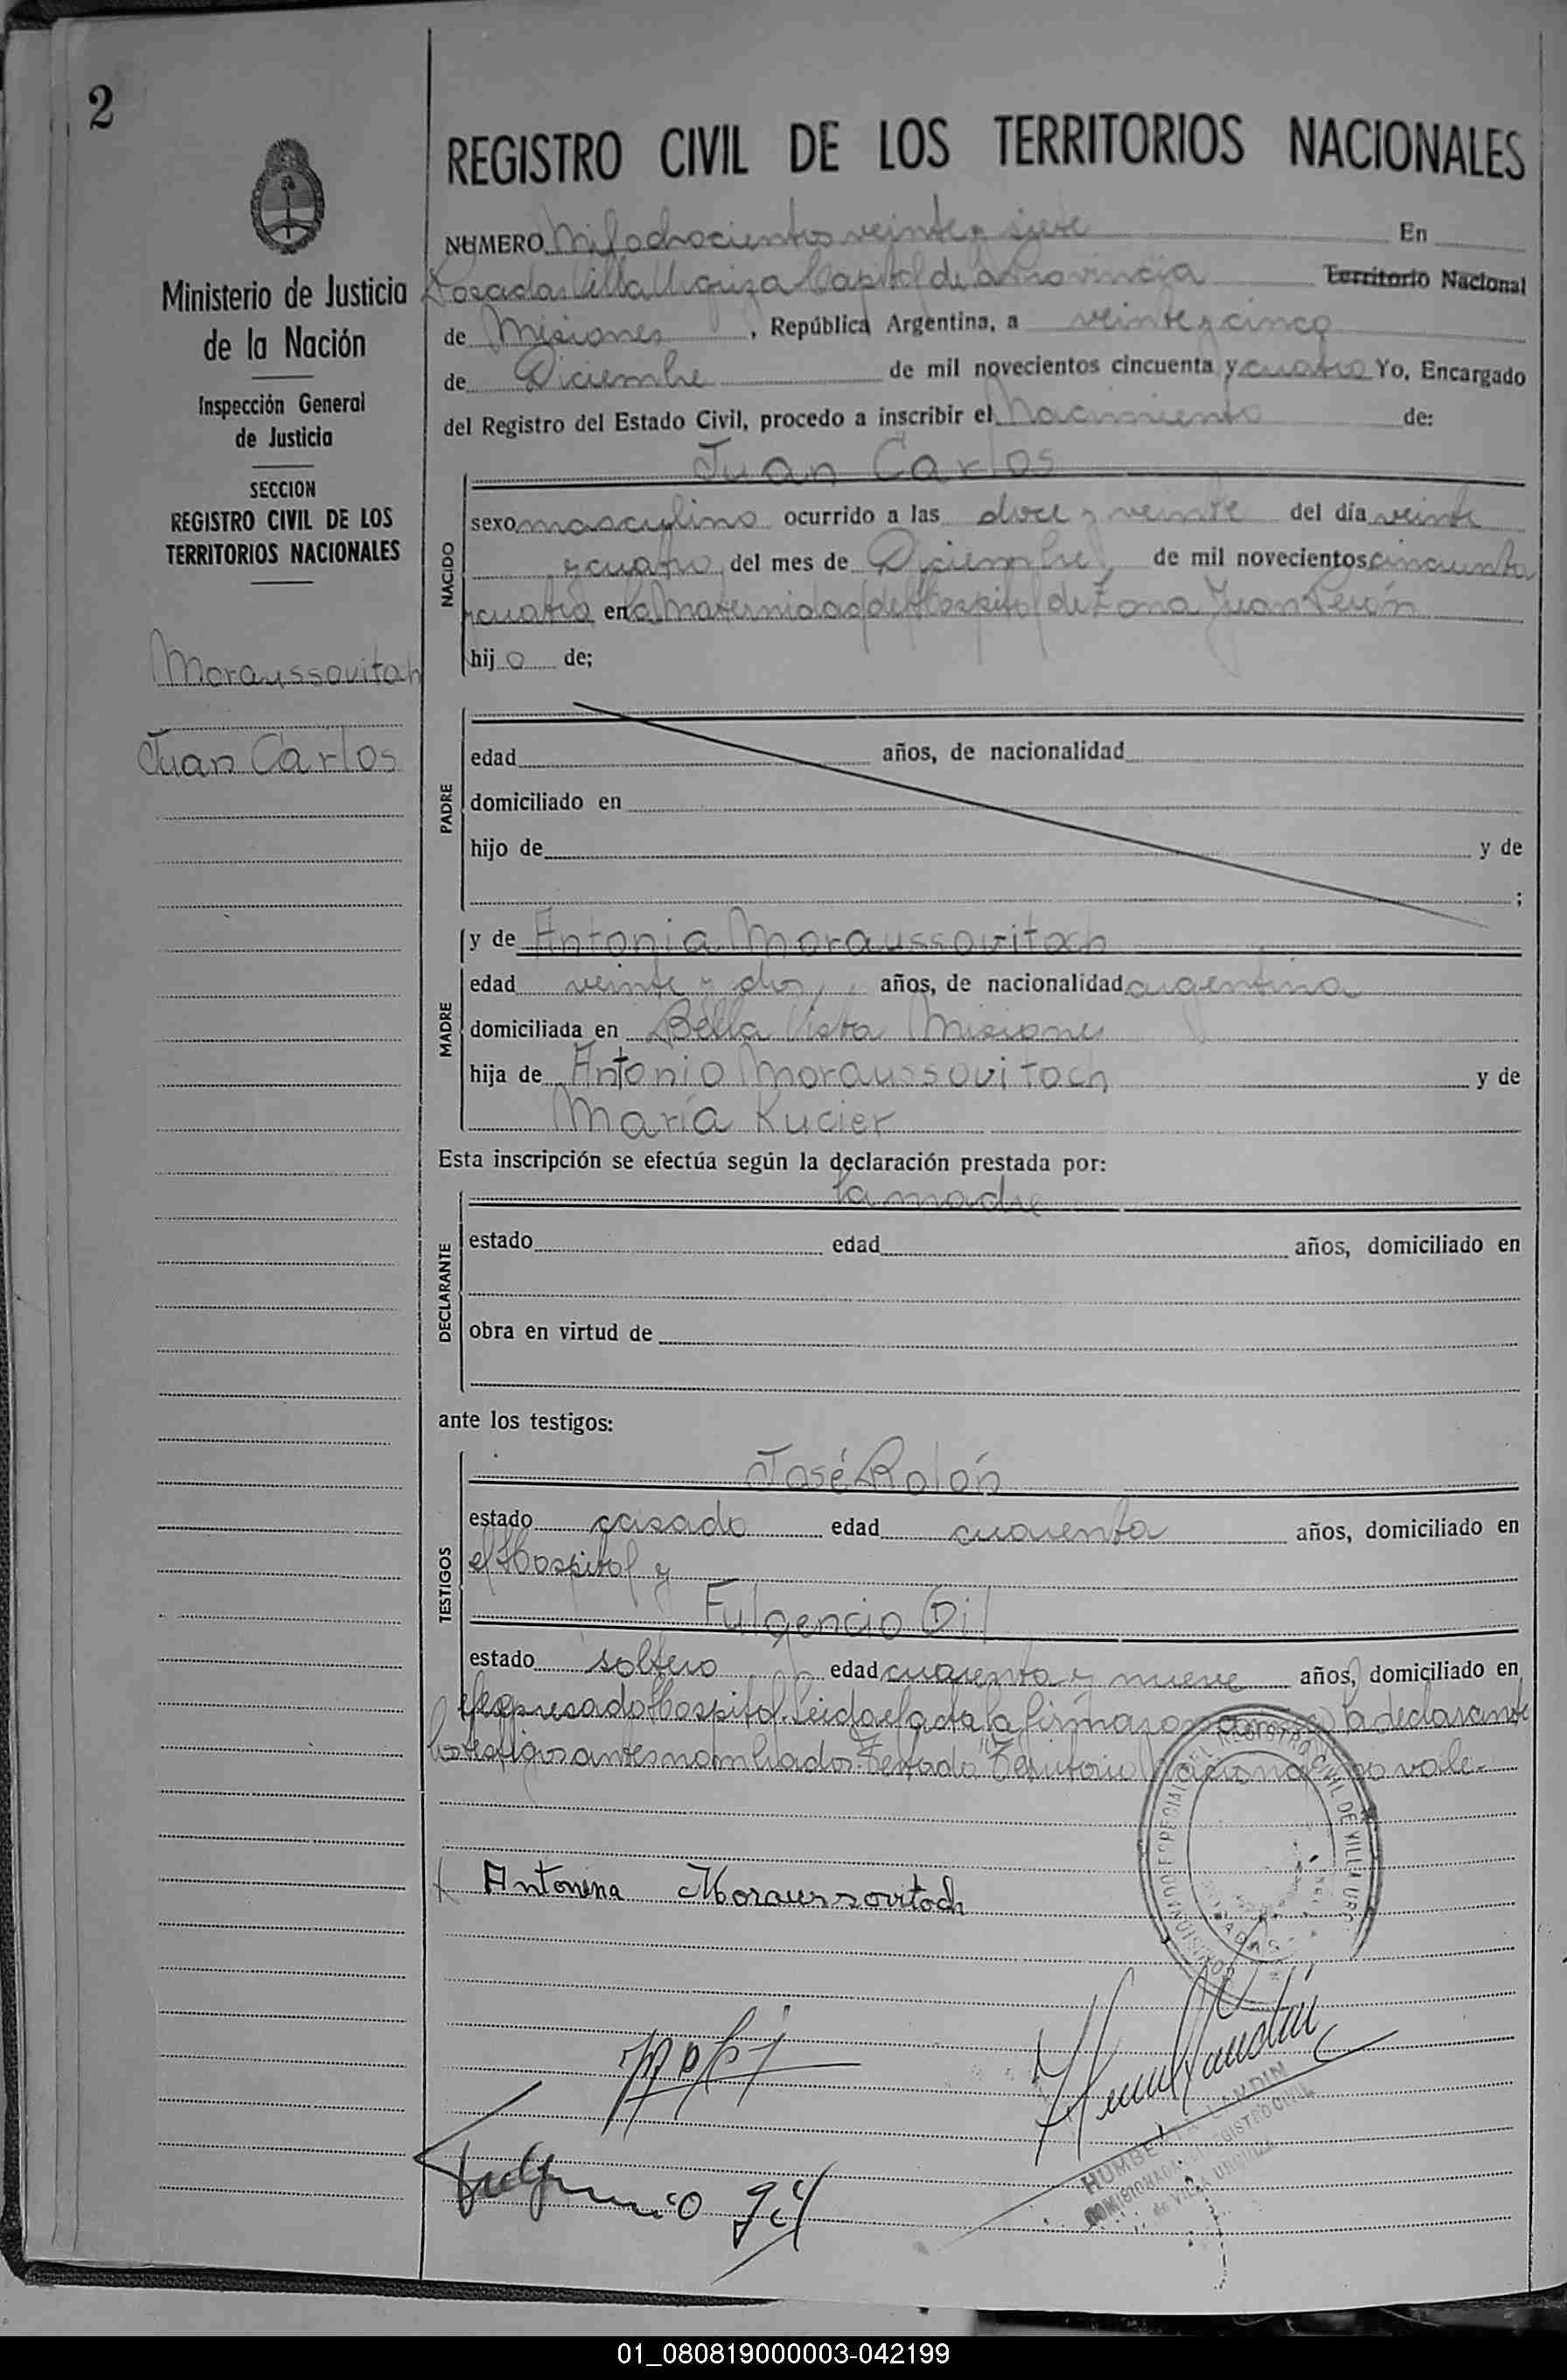 2
REGISTRO CIVIL DE LOS TERRITORIOS NACIONALES
Ministerio de Justicia
de la Nación
Inspección General
de Justicia
SECCION
REGISTRO CIVIL DE LOS
TERRITORIOS NACIONALES
Moraussovitoch
Juan Carlos
NUMERO Mil ochocientos veinte y siete En
Posadas Villa Urquiza Capital de la Provincia Territorio Nacional
de Misiones, República Argentina, a veinte y cinco
de Diciembre de mil novecientos cincuenta y cuatro Yo, Encargado
del Registro del Estado Civil, procedo a inscribir el Nacimiento de:
NACIDO
Juan Carlos
sexo masculino ocurrido a las doce y veinte del día veinte
y cuatro del mes de Diciembre de mil novecientos cincuenta
y cuatro en la Maternidad del Hospital de Zona Juan Perón
hijo de;
PADRE
edad años, de nacionalidad
domiciliado en
hijo de y de
;
MADRE
y de Antonia Moraussovitoch
edad veinte y dos años, de nacionalidad argentina
domiciliada en Bella Vista Misiones
hija de Antonio Moraussovitoch y de
María Kucier
Esta inscripción se efectúa según la declaración prestada por:
DECLARANTE
la madre
estado edad años, domiciliado en
obra en virtud de
ante los testigos:
TESTIGOS
José Rolón
estado casado edad cuarenta años, domiciliado en
el Hospital y
Fulgencio Gil
estado soltero edad cuarenta y nueve años, domiciliado en
el expresado Hospital. Leida el acta la firmaron la declarante
los testigos antes nombrados. Testado "Territorio Nacional" no vale.
DEL REGISTRO CIVIL DE VILLA URQ
Antonina Moraussovitoch
Fulgencio Gil
REGISTRO CIVIL
de VILLA URQUIZA
01_080819000003-042199